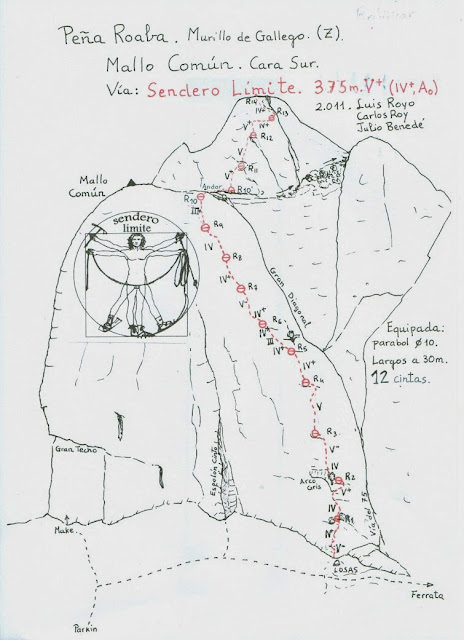 Peña Roaba. Murillo de Gallego. (Z).
Mallo Común. Cara Sur.
Vía: Sendero Límite. 375m. V⁺ (IV⁺, A₀)
2.011. Luis Royo
Carlos Roy
Julio Benedé
R14
IV⁺
R13
V⁺
IV⁺
R12
V
R11
V
Andar
R10'
Mallo
Común
R10
III
R9
IV
R8
IV⁺
R7
V
IV⁺
R6
IV⁺
III
R5
IV⁺
R4
V
R3
V⁻
IV
R2
V⁺
IV
R1
V⁻
LOSAS
sendero
límite
Gran Diagonal
Equipada:
parabol ø10.
Largos a 30m.
12 cintas.
Gran Techo
Espolón Cinto
Arco
Gris
Vía del 75
Make
Parkin
Ferrata